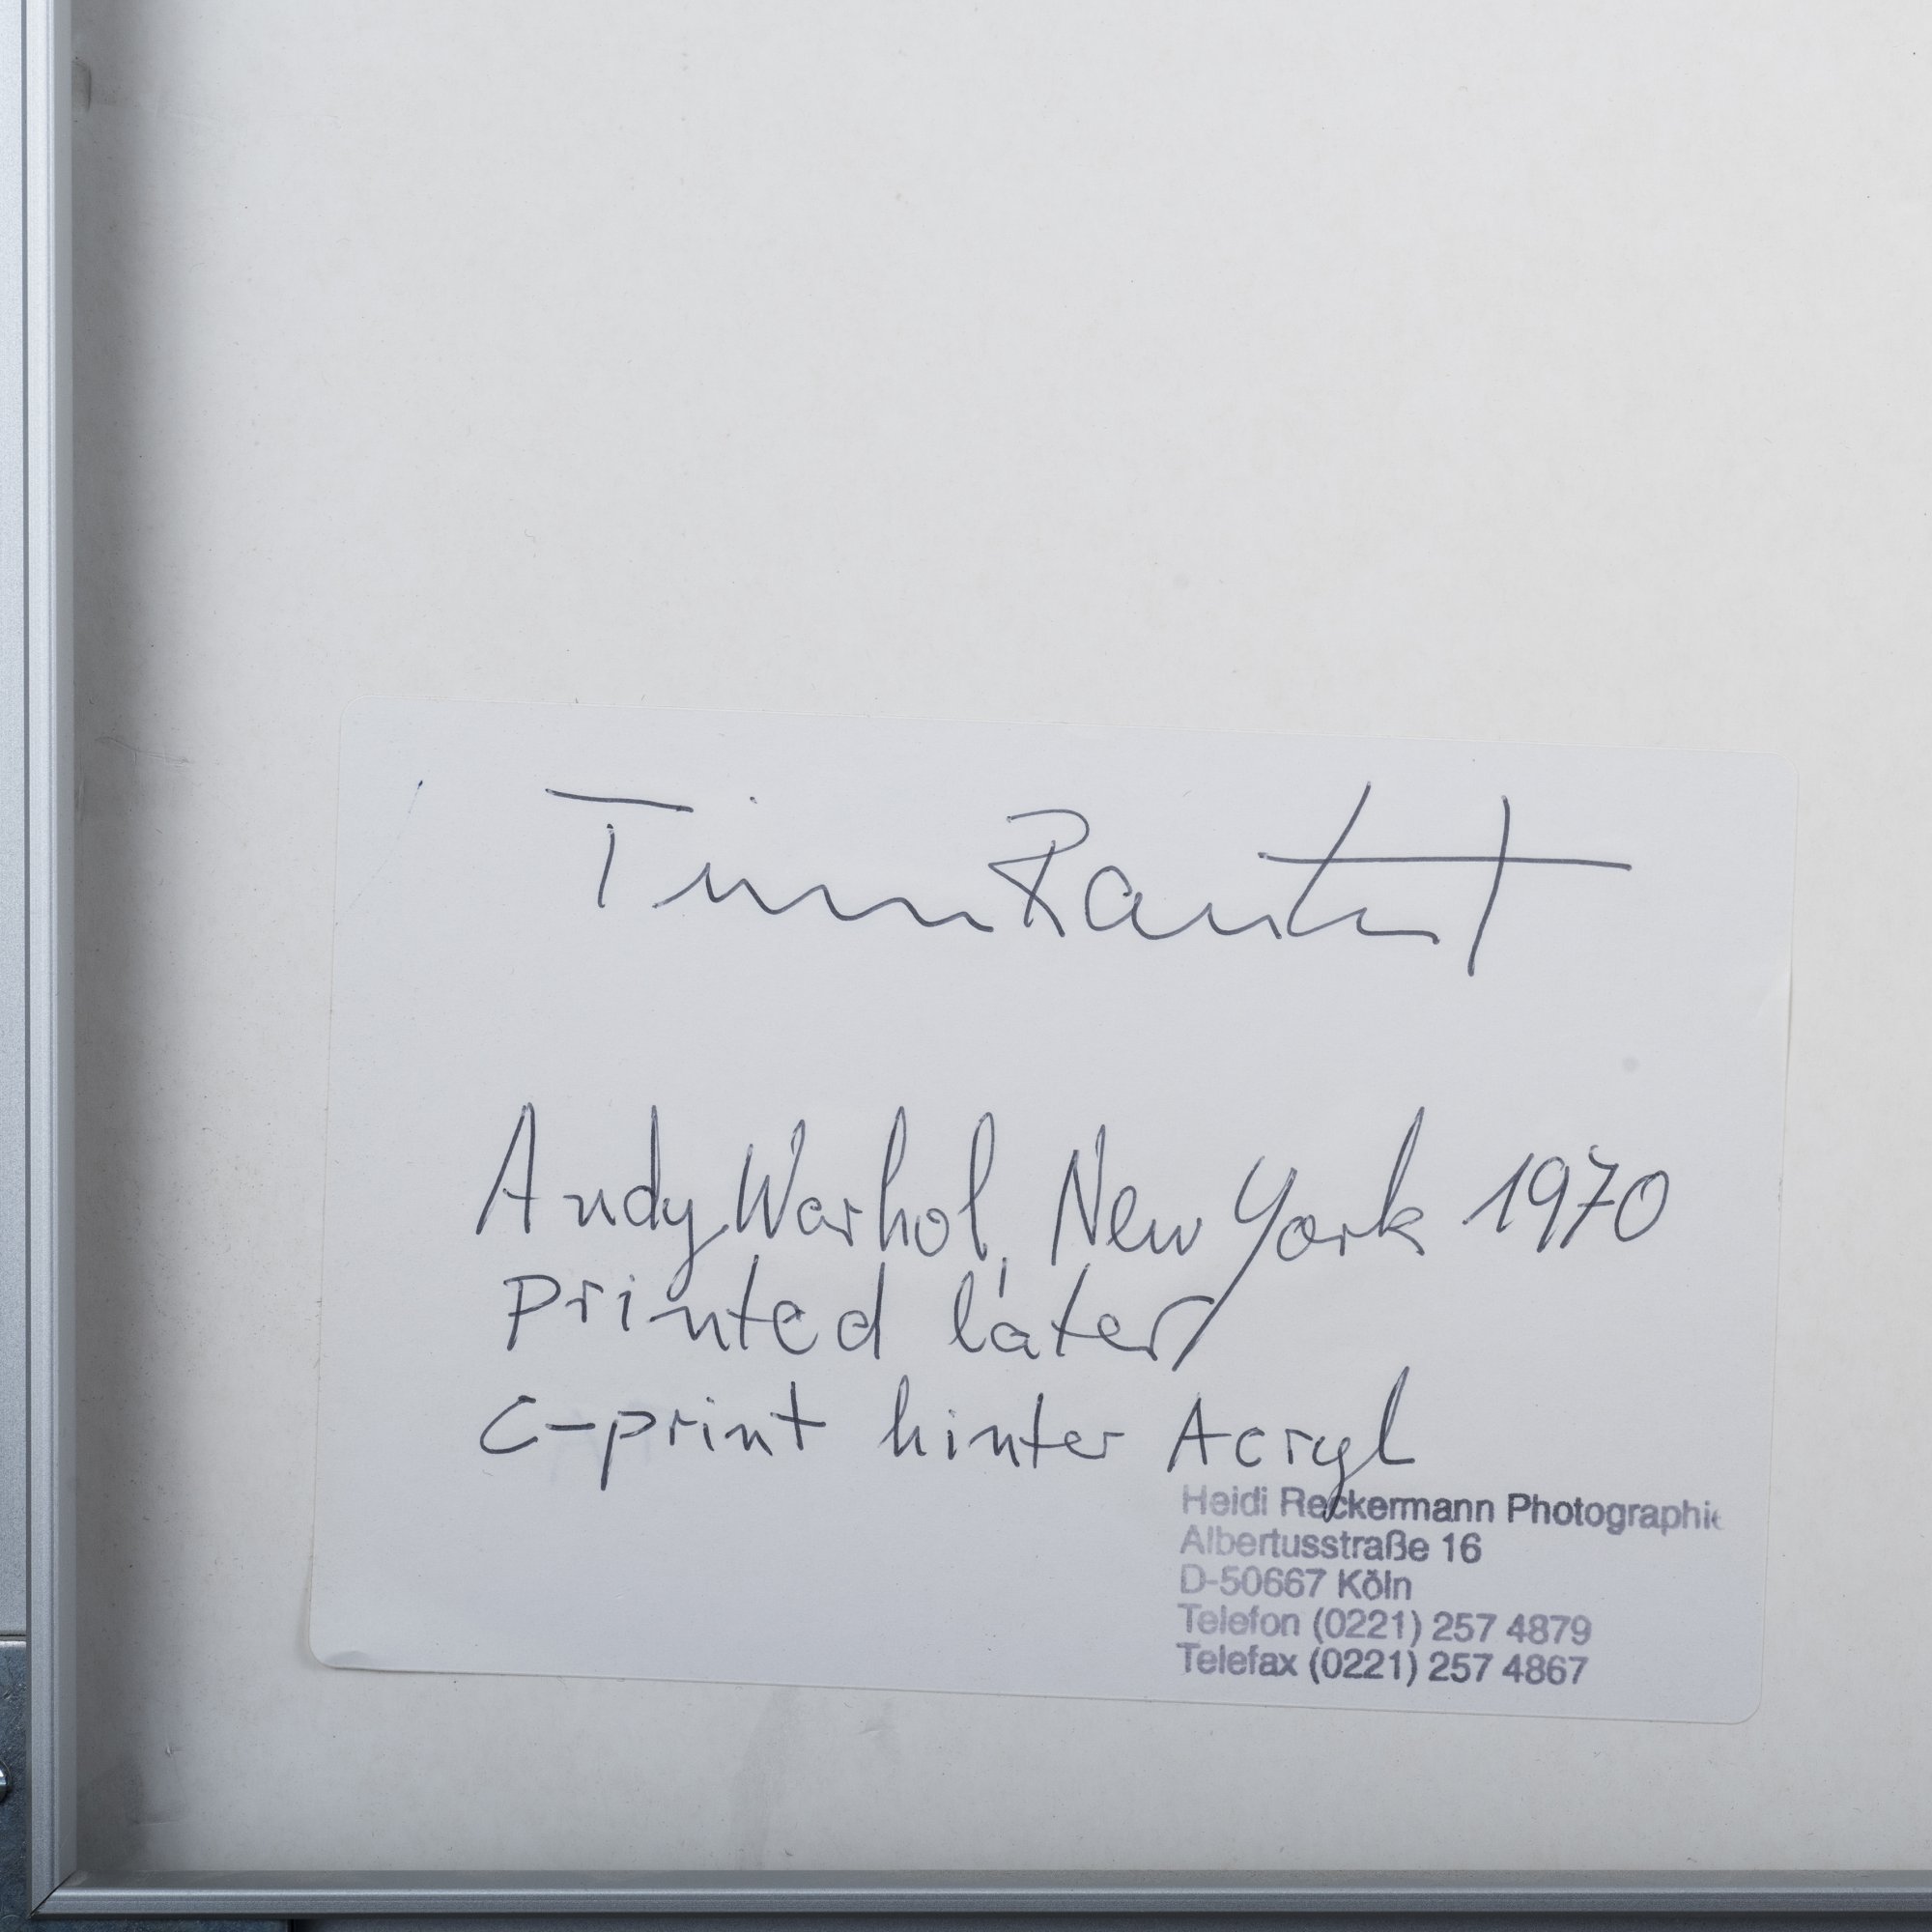 Timm Rautert
Andy Warhol, New York 1970
Printed later
C-print hinter Acryl
Heidi Reckermann Photographie
Albertusstraße 16
D-50667 Köln
Telefon (0221) 257 4879
Telefax (0221) 257 4867